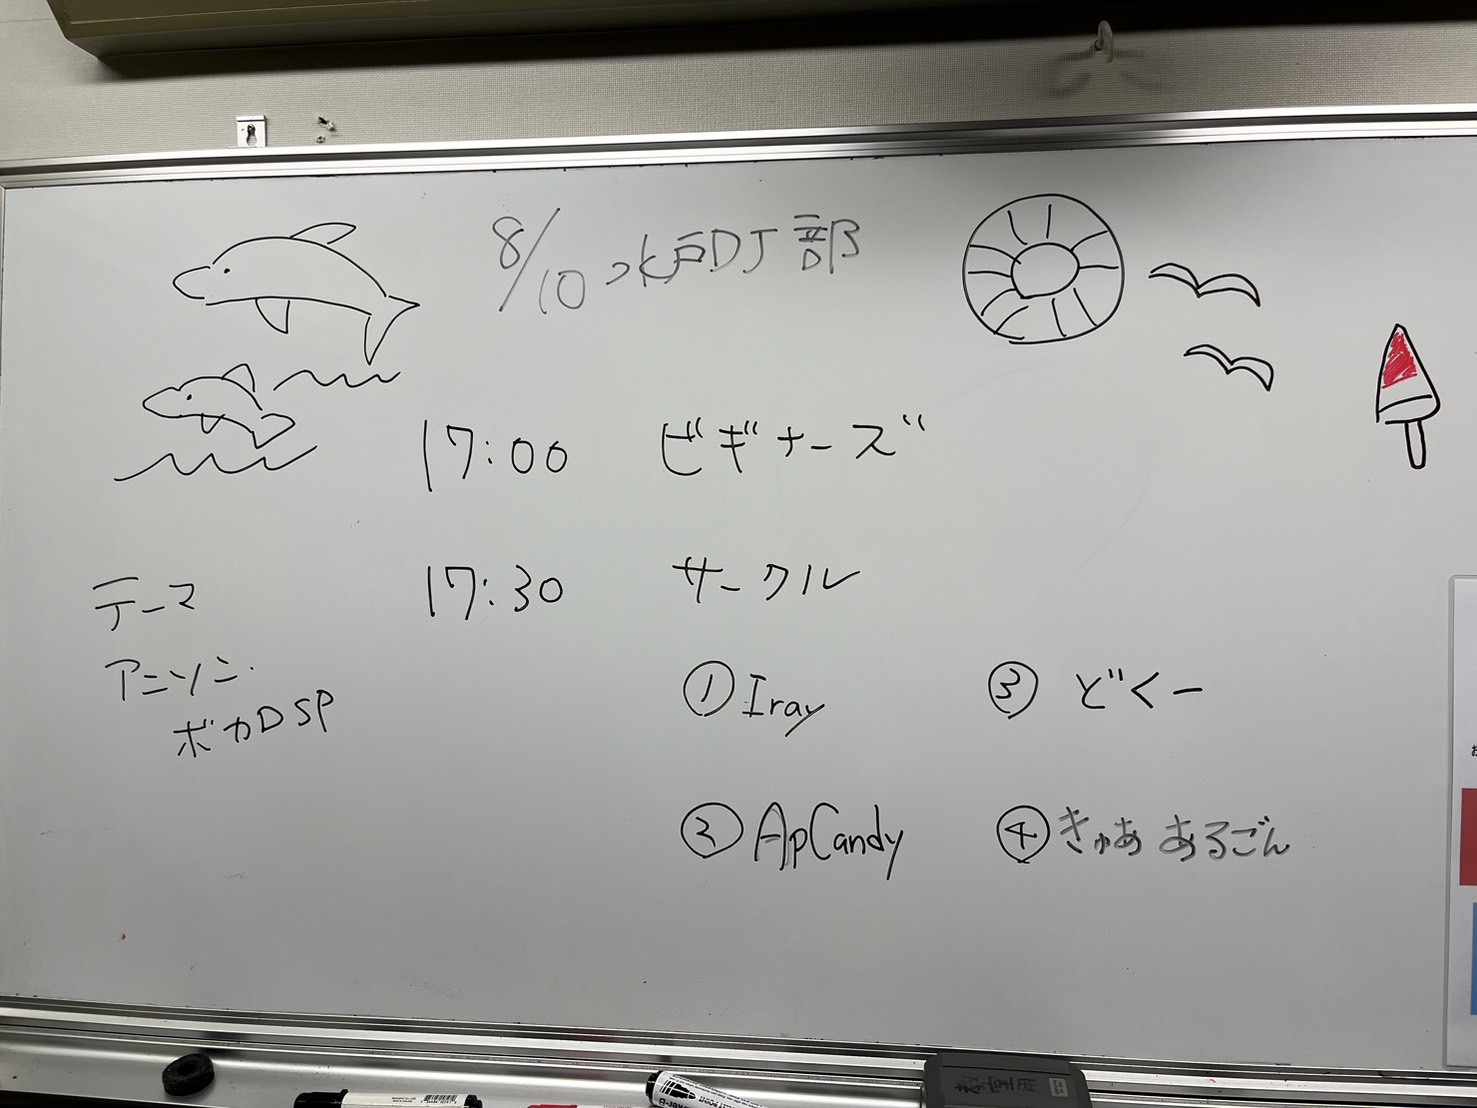 8/10 水戸DJ部
17:00 ビギナーズ
17:30 サークル
テーマ
アニソン・
ボカDSP
① Iray
③ どくー
② ApCandy
④ きゅあ あるごん